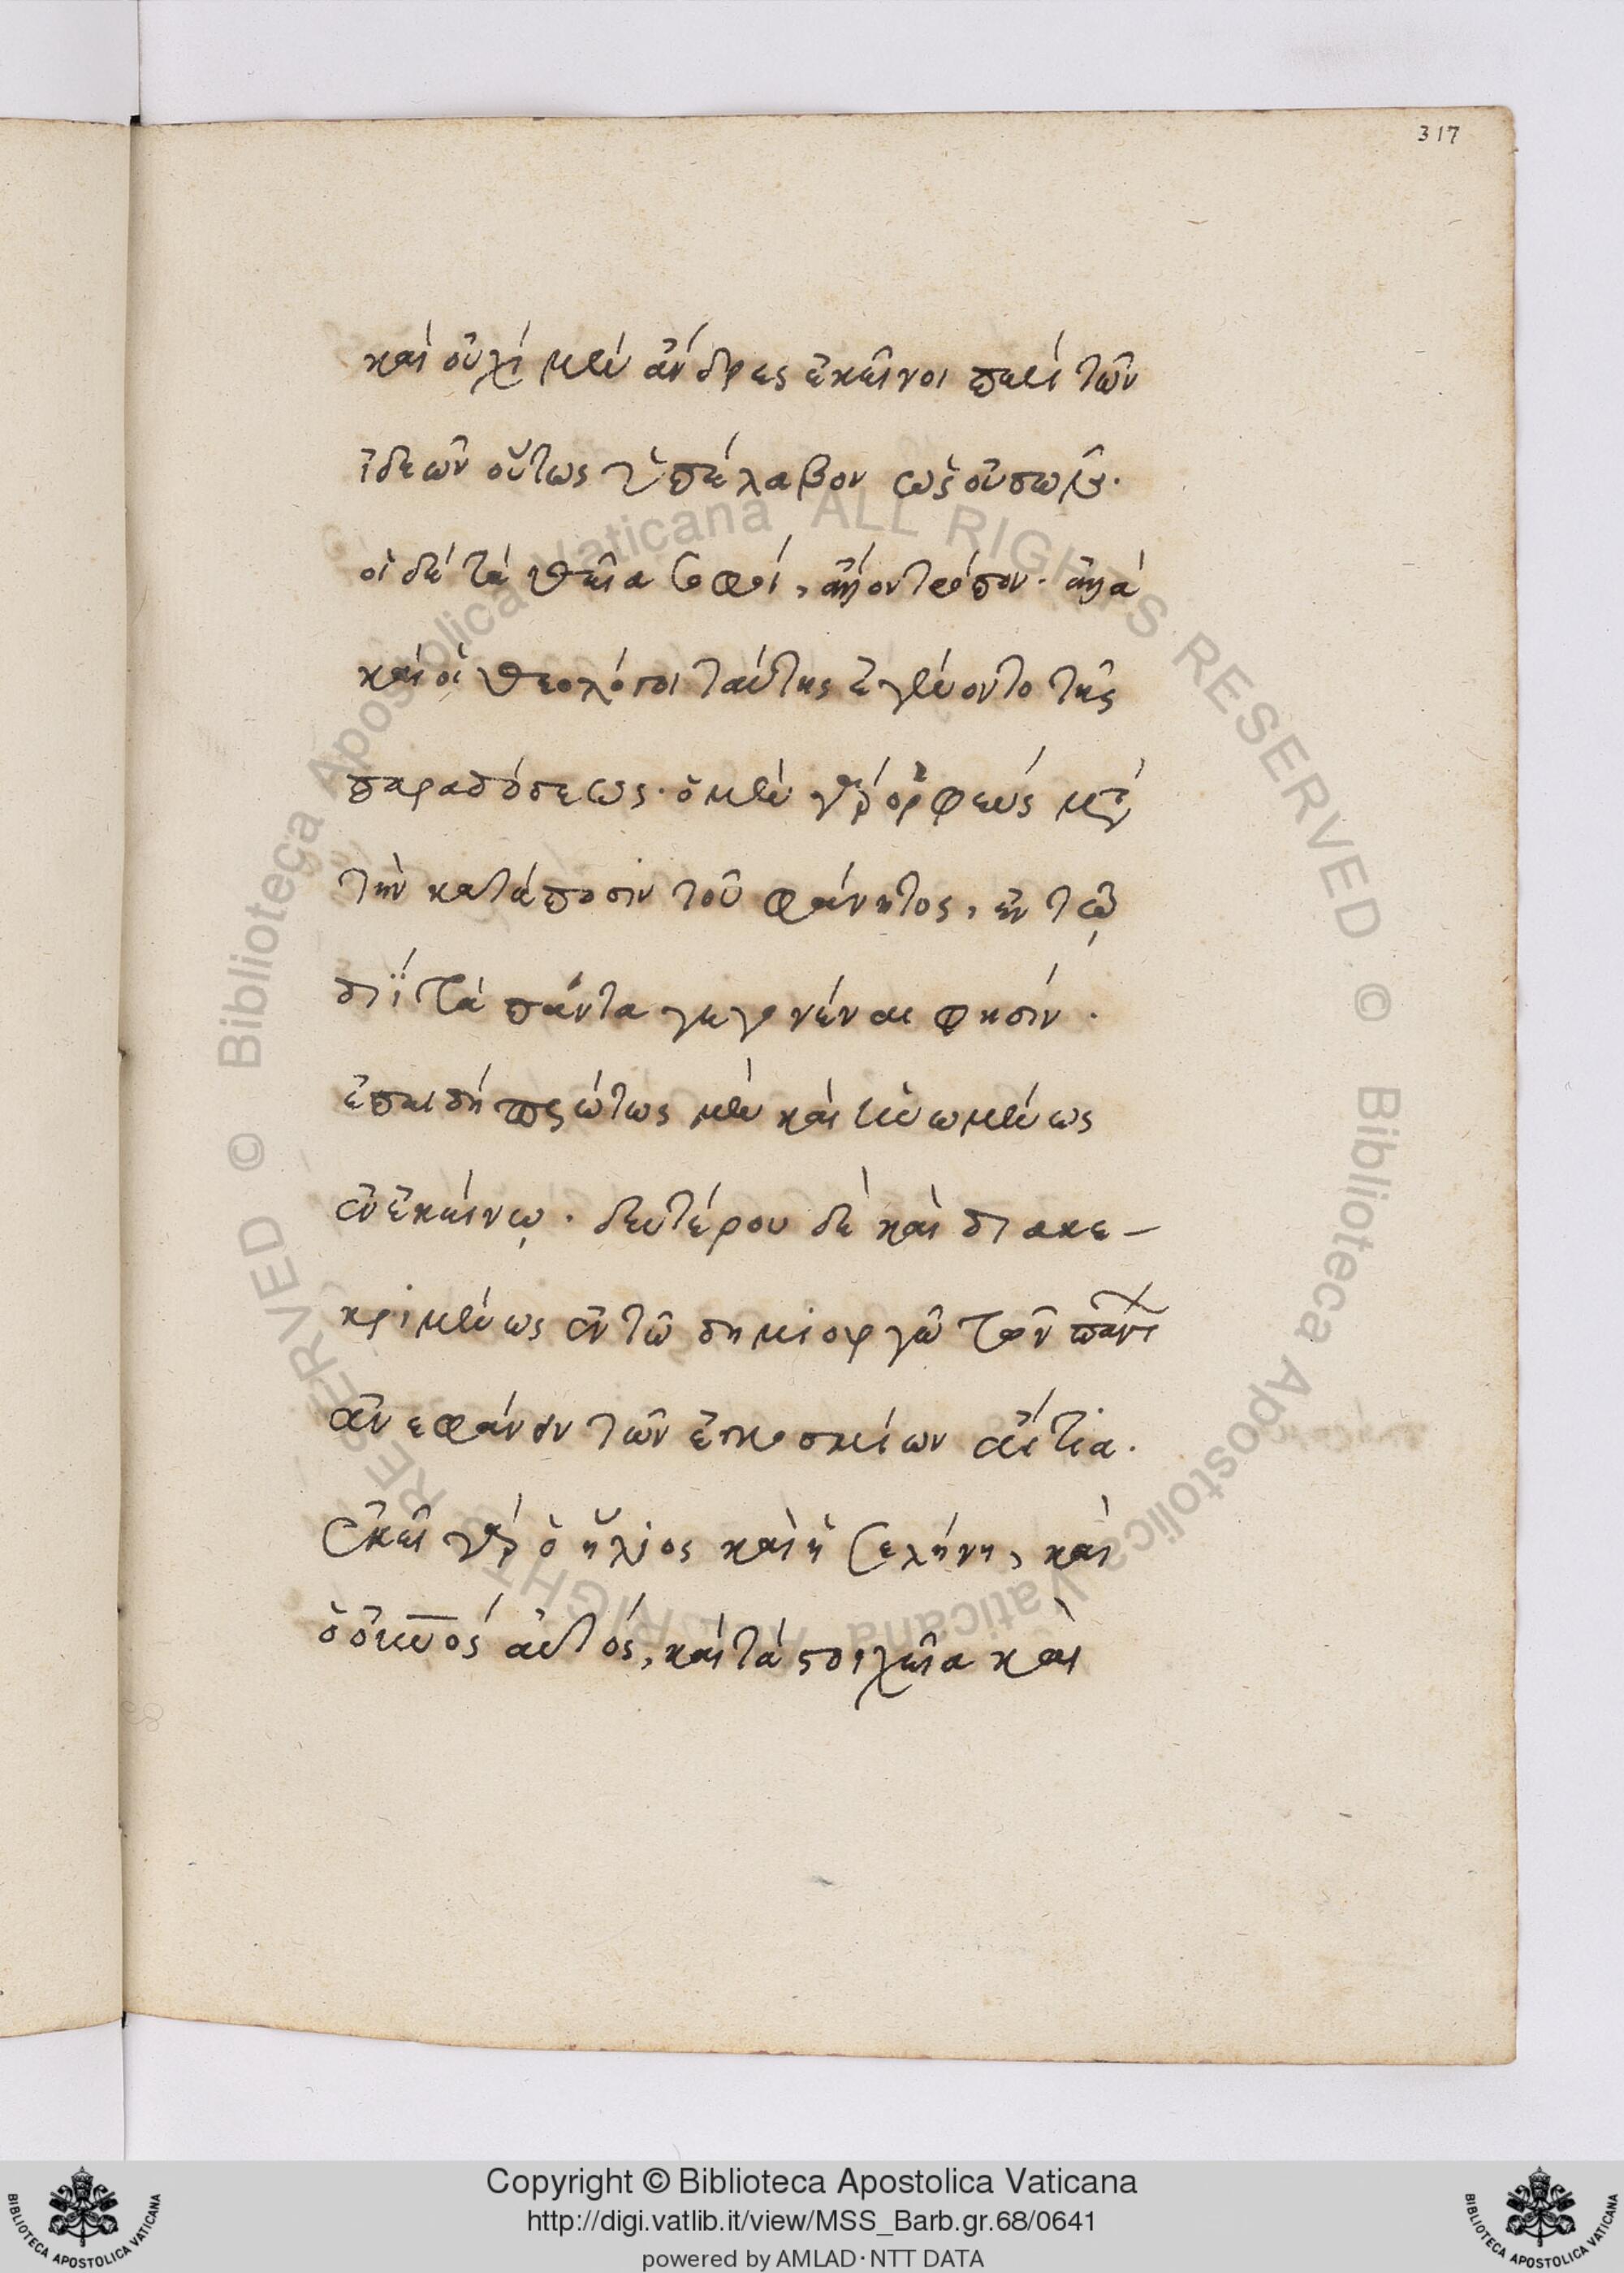 317
καὶ οὐχὶ μὲν ἄνδρες ἐκεῖνοι περὶ τῶν
ἰδεῶν οὕτως ὑπέλαβον
οἱ δὲ τὰ θεῖα σοφοί, ἄλλον τρόπον. ἀλλὰ
καὶ οἱ θεολόγοι ταύτης ἐγένοντο τῆς
παραδόσεως. ὁ μὲν γὰρ ὀρφεύς μετὰ
τὴν κατάποσιν τοῦ φάνητος, ἐν τῷ
διῒ τὰ πάντα γεγονέναι φησίν.
ἐπειδὴ πρώτως μὲν καὶ ἡνωμένως
ἐν ἐκείνῳ. δευτέρου δὲ καὶ διακε-
κριμένως ἐν τῶ δημιοργῶ τῶν
ἀνεφάνην τῶν ἐγκοσμίων αἴτια.
ἐκεῖ γὰρ ὁ ἥλιος καὶ ἡ σελήνη, καὶ
ὁ οὐνος αὐτός, καὶ τὰ στοιχεῖα καὶ
© Biblioteca Apostolica Vaticana ALL RIGHTS RESERVED © Biblioteca Apostolica Vaticana ALL RIGHTS RESERVED
BIBLIOTECA APOSTOLICA VATICANA
Copyright © Biblioteca Apostolica Vaticana
http://digi.vatlib.it/view/MSS_Barb.gr.68/0641
powered by AMLAD·NTT DATA
BIBLIOTECA APOSTOLICA VATICANA